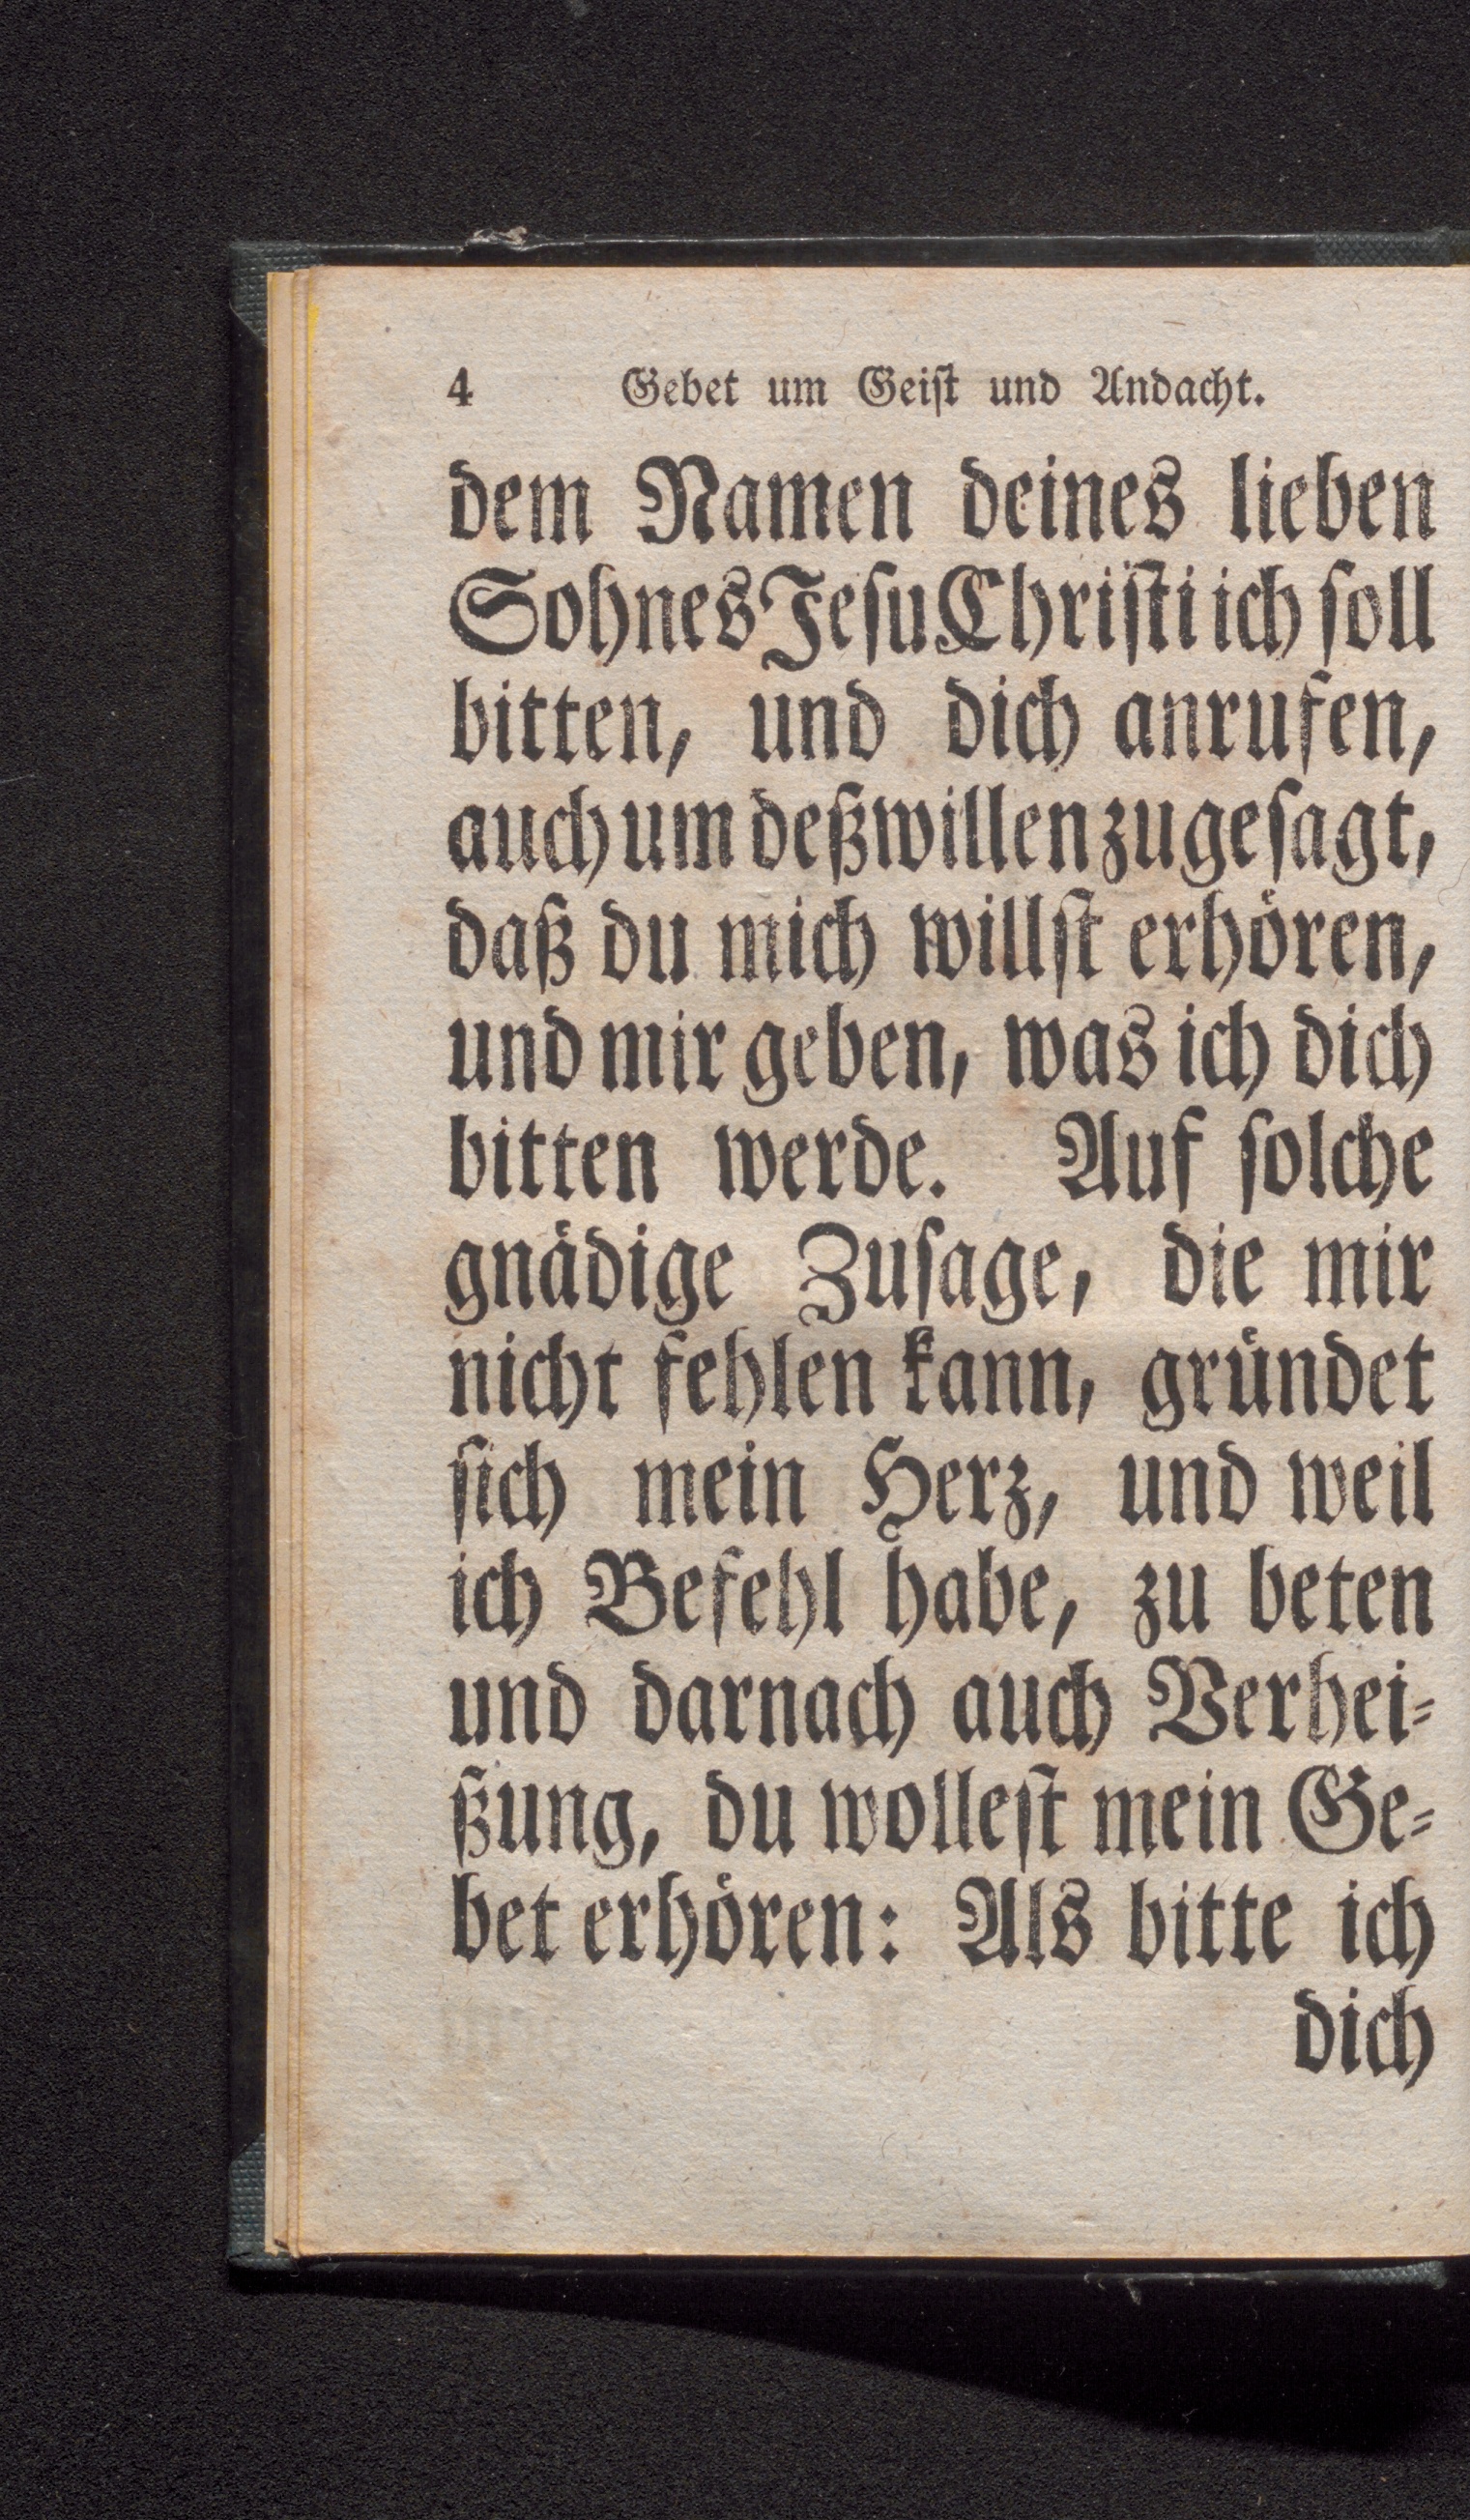 4 Gebet um Geiſt und Andacht.
dem Namen deines lieben
Sohnes Jeſu Chriſti ich ſoll
bitten, und dich anrufen,
auch um deßwillen zugeſagt,
daß du mich willſt erhören,
und mir geben, was ich dich
bitten werde. Auf ſolche
gnädige Zuſage, die mir
nicht fehlen kann, gründet
ſich mein Herz, und weil
ich Befehl habe, zu beten
und darnach auch Verhei⸗
ßung, du wolleſt mein Ge⸗
bet erhören: Als bitte ich
dich